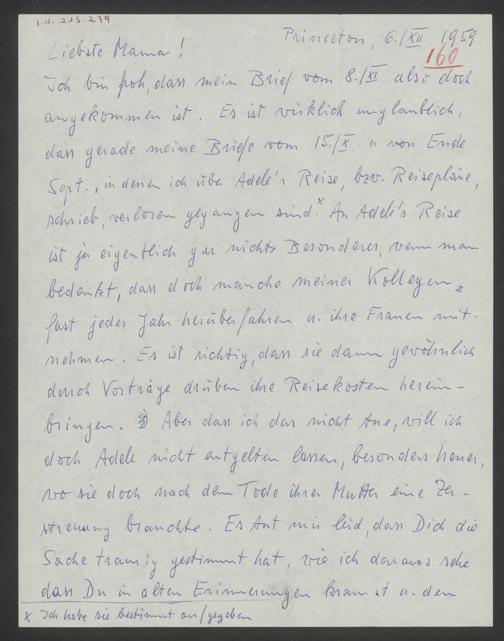 I.N. 213.279
Princeton, 6./XII 1959.
160
Liebste Mama!
Ich bin froh, dass mein Brief vom 8./XI. also doch
angekommen ist. Es ist wirklich unglaublich,
dass gerade meine Briefe vom 15./X. u. von Ende
Sept., in denen ich über Adele's Reise, bzw. Reisepläne,
schrieb, verloren gegangen sind.x An Adele's Reise
ist ja eigentlich gar nichts Besonderes, wenn man
bedenkt, dass doch manche meiner Kollegen
fast jedes Jahr herüberfahren u. ihre Frauen mit-
nehmen. Es ist richtig, dass sie dann gewöhnlich
durch Vorträge drüben ihre Reisekosten herein-
bringen. Aber dass ich das nicht tue, will ich
doch Adele nicht entgelten lassen, besonders heuer,
wo sie doch nach dem Tode ihrer Mutter eine Zer-
streuung brauchte. Es tut mir leid, dass Dich die
Sache traurig gestimmt hat, wie ich daraus sehe
dass Du in alten Erinnerungen kramst u. den
x Ich habe sie bestimmt aufgegeben